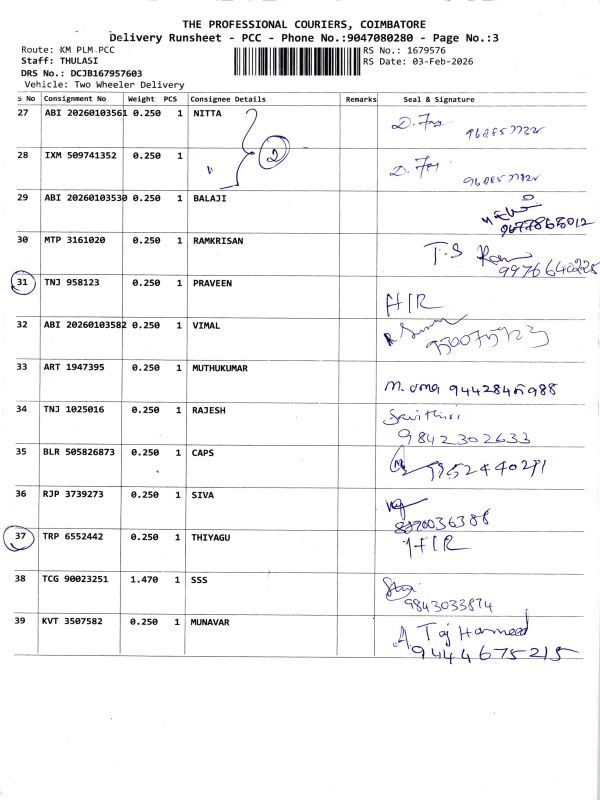 THE PROFESSIONAL COURIERS, COIMBATORE
Delivery Runsheet - PCC - Phone No.:9047080280 - Page No.:3
Route: KM PLM.PCC
RS No.: 1679576
Staff: THULASI
RS Date: 03-Feb-2026
DRS No.: DCJB167957603
Vehicle: Two Wheeler Delivery
S No Consignment No Weight PCS Consignee Details Remarks Seal & Signature
27 ABI 20260103561 0.250 1 NITTA
2
28 IXM 509741352 0.250 1 "
29 ABI 20260103530 0.250 1 BALAJI
30 MTP 3161020 0.250 1 RAMKRISAN T.S
9976640225
31 TNJ 958123 0.250 1 PRAVEEN
32 ABI 20260103582 0.250 1 VIMAL
33 ART 1947395 0.250 1 MUTHUKUMAR M. Uma
34 TNJ 1025016 0.250 1 RAJESH
9842302633
35 BLR 505826873 0.250 1 CAPS
36 RJP 3739273 0.250 1 SIVA
37 TRP 6552442 0.250 1 THIYAGU
38 TCG 90023251 1.470 1 SSS
9843033874
39 KVT 3507582 0.250 1 MUNAVAR A Taj Hameed
9444675215